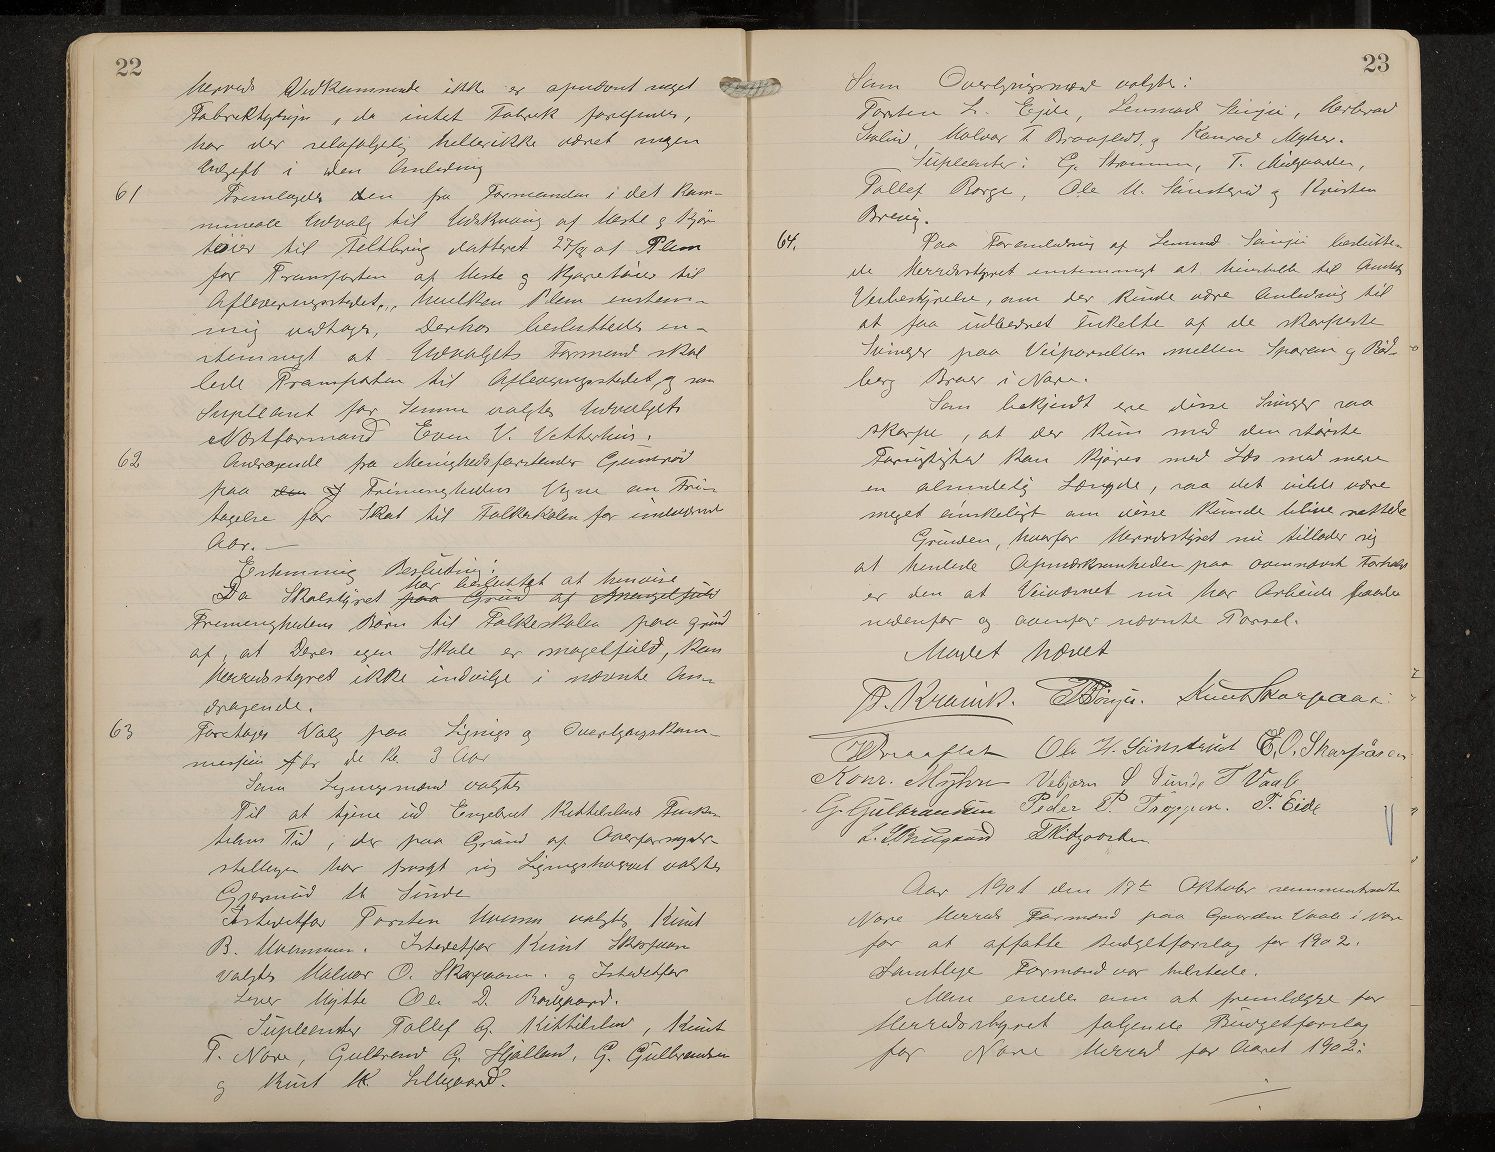 22
Herreds Vedkommende ikke er opnævnt noget
Fabriktilsyn, da intet Fabrik forefindes,
har der selvfølgelig heller ikke været nogen
Udgift i den Anledning
61 Fremlagdes den fra Formanden i det kom-
munale Udvalg til Udskrivning af Heste og Kjør-
tøier til Feltbrug datteret 27/8 at Plan
for Transporten af Heste og Kjøretøier til
Afleveringsstedet, hvilken Plan enstem-
mig vedtages, Derhos besluttedes en-
stemmigt at Udvalgets Formand skal
lede Transporten til Afleveringsstedet, og som
Supleant for Samme valgtes Udvalgets
Næstformand Even V. Vetterhus.
62 Andragende fra Menighedsforstander Gunnerød
paa Frimenighedens Vegne om Fri-
tagelse for Skat til Folkeskolen for indeværende
Aar. —
Estemmig Beslutning:
har besluttet at henvise
Da Skolstyret paa Grund af Mangelfuld
Frimenighedens Børn til Folkeskolen paa grund
af, at Deres egen Skole er mangelfuld, kan
Herredsstyret ikke indvilge i nævnte An-
dragende.
63 Foretages Valg paa Lignings og Overligningskom-
mission for de k. 3 Aar
Som Ligningsmænd valgtes
Til at tjene ud Engebret Kittilslands Funk-
tions Tid, der paa Grund af Overformynder-
stillingen har frasagt sig Ligningshvervet valgtes
Gjermund H. Sunde
Istedetfor Torsten Hvamm valgtes Knut
B. Hvammen. Istedetfor Knut Skarpaas
valgtes Halvor O. Skarpaas. og Istedetfor
Syver Mytte Ole D. Rødgaard.
Supleanter Tollef G. Kittilsland, Knut
T. Nore, Gulbrand G. Hjalland, G. Gulbrandsen
og Knut K. Lillegaard.
23
Som Overligningsmænd valgtes:
Torsten L. Eide, Lensmand Simju, Herbrand
Halvor T. Braaflat, og Konrad Myhre.
Supleanter: G. Strømmen, T. Midgaarden,
Tollef Borge, Ole H. Sønsterud og Kristen
Brevig.
64. Paa Foranledning af Lensmand Simju beslutte-
de Herredsstyret enstemmigt at henstille til Amtets
Veibestyrelse, om der kunde være Anledning til
at faa udbedret Enkelte af de skarpeste
Svinger paa Veiparsellen mellem Sporan og Rød-
berg Broer i Nore.
Som bekjendt ere disse Svinger saa
skarpe, at der kun med den største
Forsigtighed kan kjøres med Læs med mere
en almindelig Længde, saa det vilde være
meget ønskeligt om disse kunde blive rettede
Grunden, hvorfor Herredsstyret nu tillader sig
at henlede Opmærksomheden paa ovennævnte Forhold
er den at Veivæsnet nu har Arbeide baade
nedenfor og ovenfor nævnte Parsel.
Mødet hævet
Knut Skarpaas.
T. Braaflat Ole H. Sønsterud E. O. Skarpaas
Konr. Myhre Vebjørn Sunde T. Vaale
G. Gulbrandsen Peder P. T. Eide
L. Skrugaard T. Midgaarden
Aar 1901 den 17de Oktober sammentraadte
Nore Herreds Formænd paa Gaarden Vaale i Nore
for at affatte Budgetforslag for 1902.
Samtlige Formænd var tilstede.
Man enedes om at fremlægge for
Herredsstyret følgende Budgetforslag
for Nore Herred for Aaret 1902: